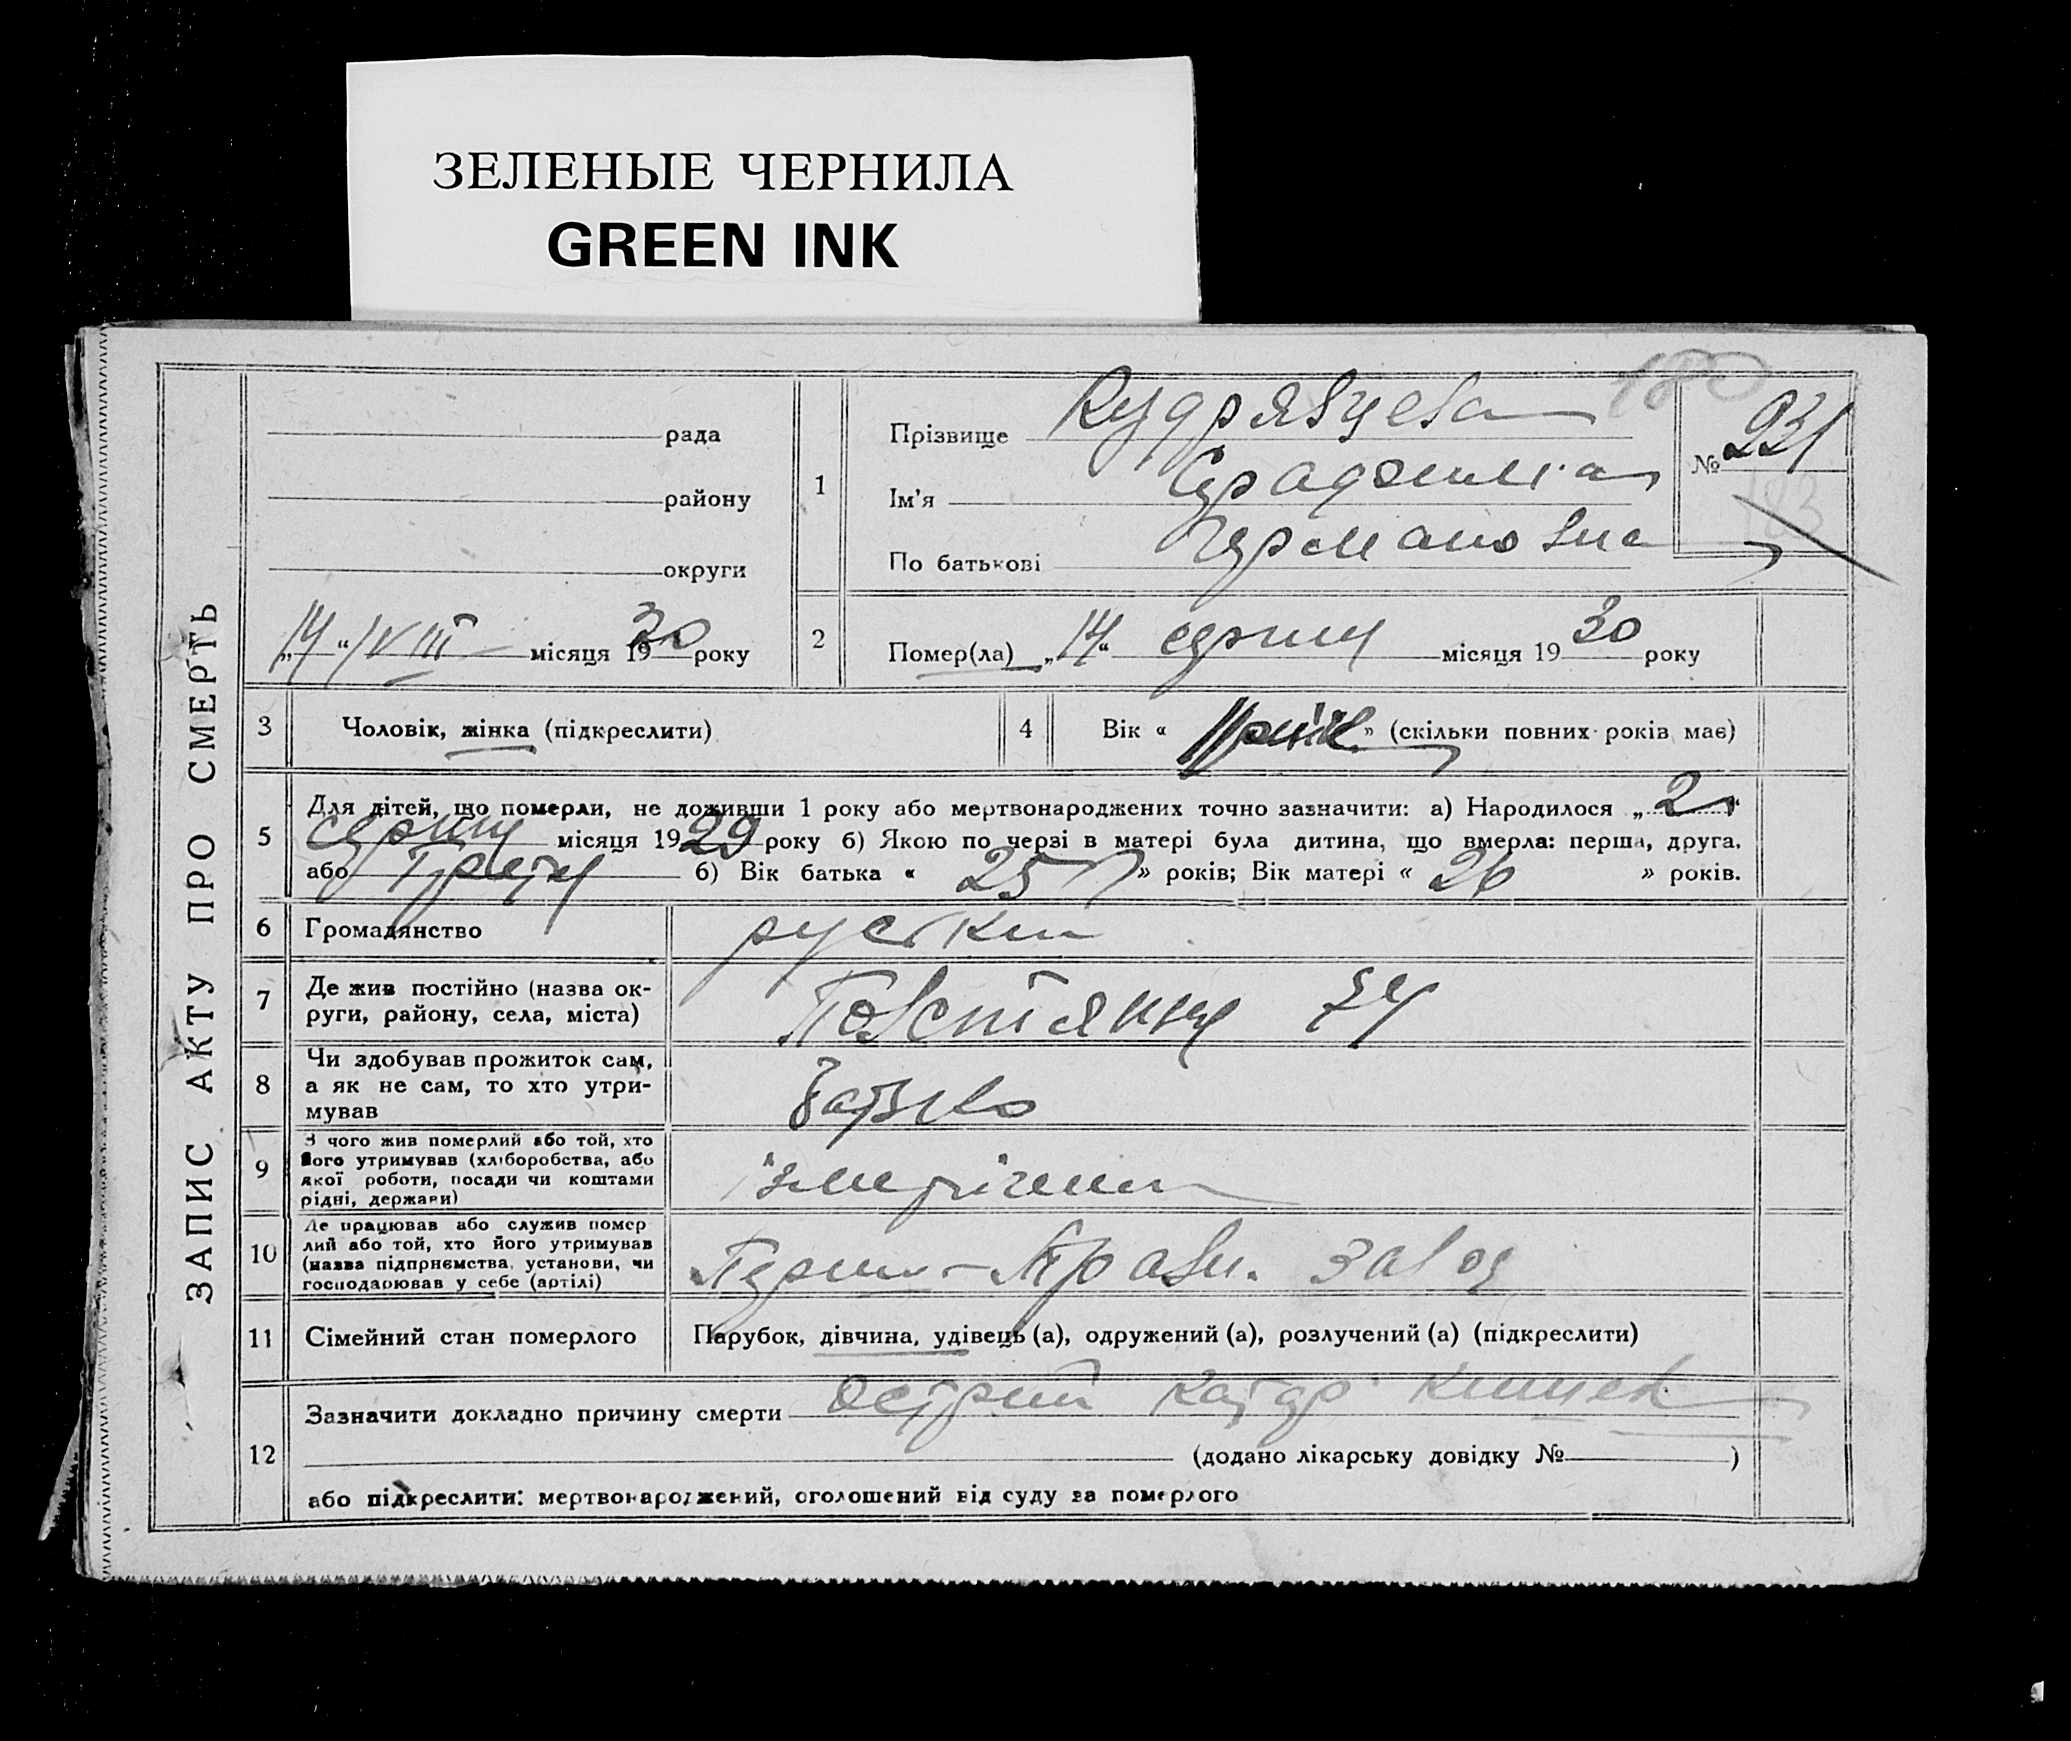 ЗЕЛЕНЫЕ ЧЕРНИЛА
GREEN INK
ЗАПИС АКТУ ПРО СМЕРТЬ
рада
району
округи
„14“ VIII місяця 1930 року
1
Прізвище Кудрявцева
Ім'я
По батькові Германовна
№ 931
180
183
2
Помер(ла) „14“ серпня місяця 1930 року
3 Чоловік, жінка (підкреслити)
4 Вік « » (скільки повних років має)
5 Для дітей, що померли, не доживши 1 року або мертвонароджених точно зазначити: а) Народилося „2“
серпня місяця 1929 року б) Якою по черзі в матері була дитина, що вмерла: перша, друга,
або третя б) Вік батька « 25 » років; Вік матері « 26 » років.
6 Громадянство руська
7 Де жив постійно (назва ок-
руги, району, села, міста)
74
8 Чи здобував прожиток сам,
а як не сам, то хто утри-
мував
батько
9 З чого жив померлий або той, хто
його утримував (хліборобства, або
якої роботи, посади чи коштами
рідні, держави)
10 Де працював або служив помер
лий або той, хто його утримував
(назва підприємства, установи, чи
господарював у себе (артілі)
завод
11 Сімейний стан померлого Парубок, дівчина, удівець (а), одружений (а), розлучений (а) (підкреслити)
12 Зазначити докладно причину смерти острий катар кишек
(додано лікарську довідку № )
або підкреслити: мертвонароджений, оголошений від суду за померлого